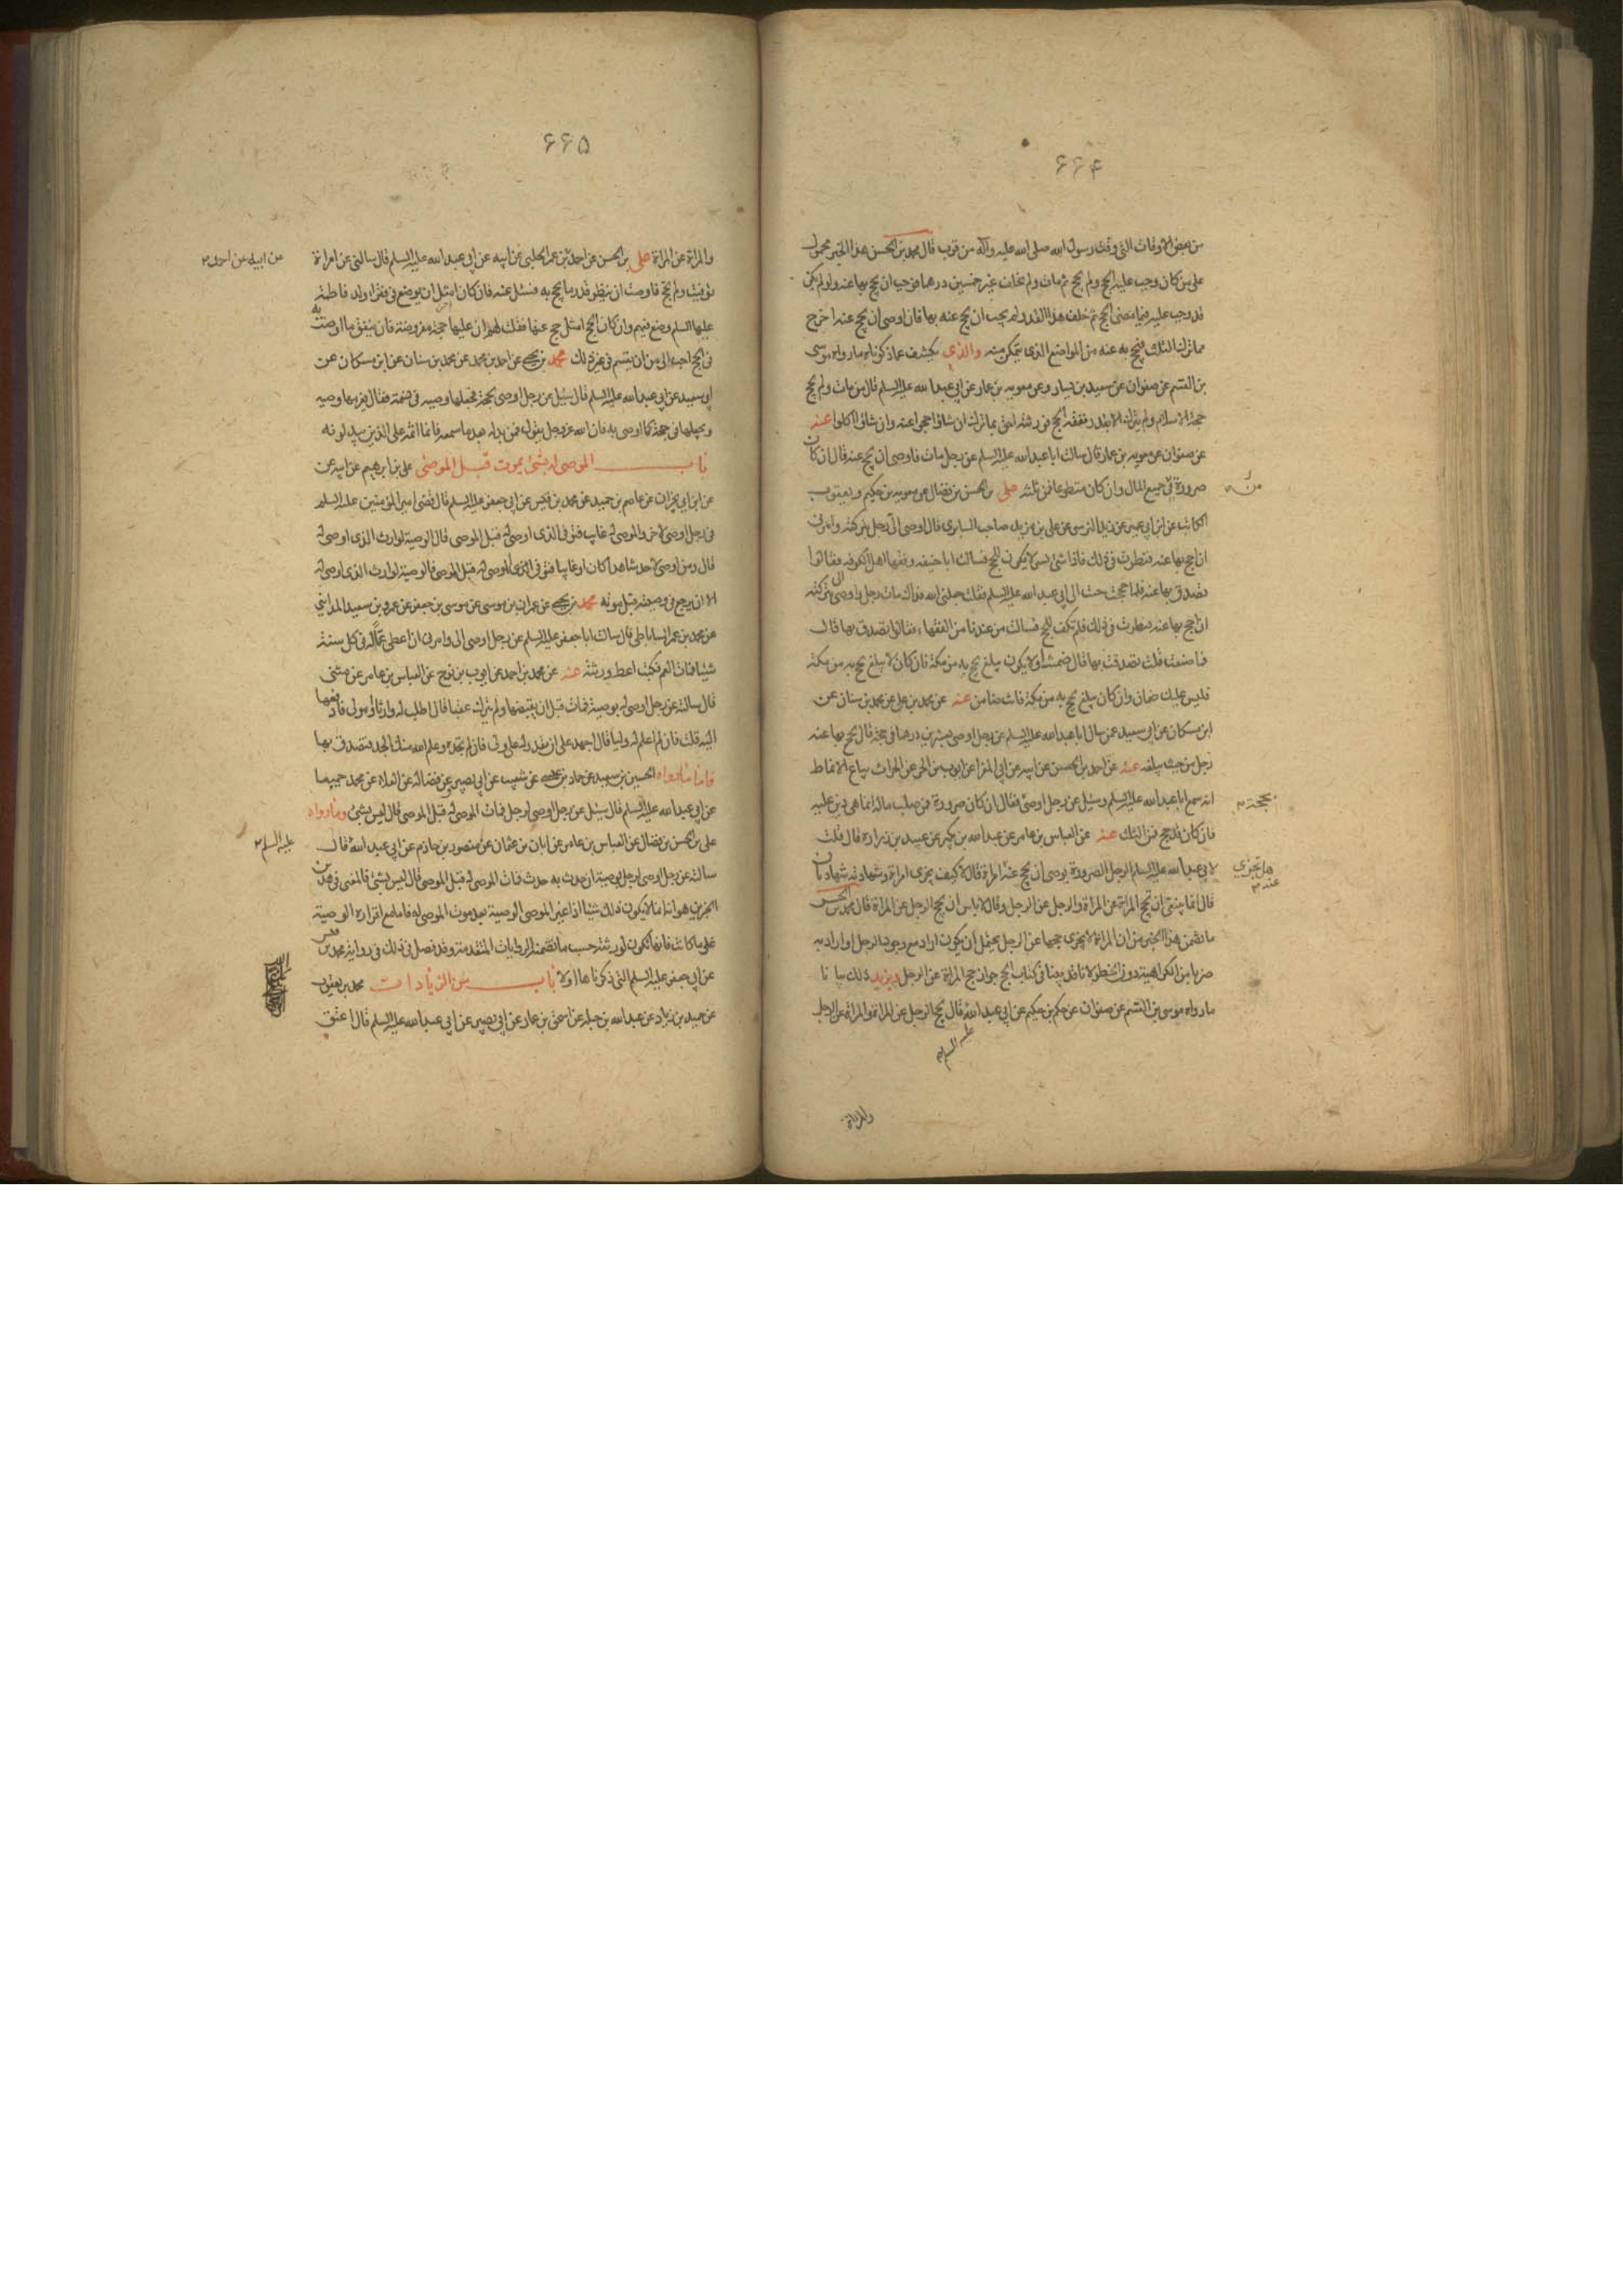 ۶۶۴
من بعض الاوقات التی وقت رسول الله صلی الله علیه وآله من قرب قال محمد بن الحسن هذا الخبر محمول
علی من کان وجب علیه الحج ولم یحج ثم مات ولم یخلف غیر خمسین درهما فوجب ان یحج بها عنه ولو لم یکن
قد وجب علیه فیما مضی الحج ثم خلف هذا القدر لم یجب ان یحج عنه بها فان اوصی ان یحج عنه اخرج
مما ترک الثلث فیحج به عنه من المواضع الذی یتمکن منه والذی یکشف عما ذکرناه ما رواه موسی
بن القسم عن صفوان عن سعید بن یسار وعن معویه بن عمار عن ابی عبدالله علیه السلم قال من مات ولم یحج
حجة الاسلام ولم یترک الا بقدر نفقة الحج فورثته احق بما ترک ان شاؤا حجوا عنه وان شاؤا اکلوا عنه
عن صفوان عن معویه بن عمار قال سالت ابا عبدالله علیه السلم عن رجل مات فاوصی ان یحج عنه قال ان کان
صرورة فی جمیع المال وان کان متطوعا فمن ثلثه علی بن الحسن بن فضال عن معویه بن حکیم ویعقوب
من
الکاتب عن ابن ابی عمیر عن زید النرسی عن علی بن مزید صاحب السابری قال اوصی الی رجل بترکته وامرنی
ان احج بها عنه فنظرت فی ذلک فاذا شئ یسیر لا یکون للحج فسالت ابا حنیفه وفقها اهل الکوفه فقالوا
تصدق بها عنه فلما حججت جئت الی ابی عبدالله علیه السلم فقلت جعلنی الله فداک مات رجل واوصی الی بترکته
ان احج بها عنه فنظرت فی ذلک فلم تکف للحج فسالت من عندنا من الفقهاء فقالوا تصدق بها قال
فما صنعت قلت تصدقت بها قال ضمنت او لا یکون یبلغ یحج به من مکة فان کان لا یبلغ یحج به من مکة
فلیس علیک ضمان وان کان یبلغ یحج به من مکة فانت ضامن عنه عن محمد بن علی عن محمد بن سنان عن
ابن مسکان عن ابی سعید عمن سال ابا عبدالله علیه السلم عن رجل اوصی بعشرین درهما فی حجة قال یحج بها عنه
رجل من حیث یبلغه عنه عن احمد بن الحسن عن ابیه عن ابی المغرا عن ایوب بن الحر عن الحارث بیاع الانماط
انه سمع ابا عبدالله علیه السلم وسئل عن رجل اوصی فقال ان کان صرورة فمن صلب ماله انما هی دین علیه
بحجة
فان کان قد حج فمن الثلث عنه عن العباس بن عامر عن عبدالله بن بکیر عن عبید بن زرارة قال قلت
لابی عبدالله علیه السلم الرجل الصرورة یوصی ان یحج عنه المراة قال لا کیف یجزی امراة وشهادته شهادتان
هل تجزی عنه
قال انما ینبغی ان تحج المراة عن المراة والرجل عن الرجل وقال لا باس ان یحج الرجل عن المراة قال محمد بن الحسن
ما تضمن هذا الخبر من ان المراة لا یجزی حجها عن الرجل یحتمل ان یکون اراد مع وجود الرجل او اراد به
ضربا من الکراهیة دون الحظر لانا قد بینا فی کتاب الحج جواز حج المراة عن الرجل ویزید ذلک بیانا
ما رواه موسی بن القسم عن صفوان عن حکم بن حکیم عن ابی عبدالله قال یحج الرجل عن المراة والمراة عن الرجل
علیه السلم
والمراة
۶۶۵
والمراة عن المراة علی بن الحسن عن احمد بن عمر الحلبی عن ابیه عن ابی عبدالله علیه السلم قال سالتی عن امراة
توفیت ولم تحج فاوصت ان ینظر قدر ما یحج به فسئل عنه فان کان امثل ان یوضع فی فقراء ولد فاطمة
علیها السلم وضع فیهم وان کان الحج امثل حج عنها فقلت لهم ان علیها حجة مفروضة فان ینفق ما اوصت به
فی الحج احب الی من ان یقسم فی غیر ذلک محمد بن یحیی عن احمد بن محمد عن محمد بن سنان عن ابن مسکان عن
ابی سعید عن ابی عبدالله علیه السلم قال سئل عن رجل اوصی بحجة فجعلها وصیه فی نسمة فقال یغرمها وصیه
ویجعلها فی حجة کما اوصی به فان الله عز وجل یقول فمن بدله بعد ما سمعه فانما اثمه علی الذین یبدلونه
باب الموصی له بشئ یموت قبل الموصی علی بن ابرهیم عن ابیه عن
عن ابن ابی نجران عن عاصم بن حمید عن محمد بن قیس عن ابی جعفر علیه السلم قال قضی امیر المؤمنین علیه السلم
فی رجل اوصی لاخر والموصی له غایب فتوفی الذی اوصی له قبل الموصی قال الوصیة لوارث الذی اوصی له
قال ومن اوصی لاحد شاهدا کان او غایبا فتوفی الموصی له قبل الموصی فالوصیة لوارث الذی اوصی له
الا ان یرجع فی وصیته قبل موته محمد بن یحیی عن عمران بن موسی عن موسی بن جعفر عن عمرو بن سعید المداینی
عن محمد بن عمر الساباطی قال سالت ابا جعفر علیه السلم عن رجل اوصی الی وامرنی ان اعطی عما له فی کل سنة
شیئا فمات العم فکتب اعط ورثته عنه عن محمد بن احمد عن ایوب بن نوح عن العباس بن عامر عن مثنی
قال سالته عن رجل اوصی له بوصیة فمات قبل ان یقبضها ولم یترک عقبا قال اطلب له وارثا او مولی فادفعها
الیه قلت فان لم اعلم له ولیا قال اجهد علی ان تقدر له علی ولی فان لم تجده وعلم الله منک الجد فتصدق بها
فاما ما رواه الحسین بن سعید عن حماد بن عیسی عن شعیب عن ابی بصیر وعن فضالة عن العلاء عن محمد جمیعا
عن ابی عبدالله علیه السلم قال سئل عن رجل اوصی لرجل فمات الموصی له قبل الموصی قال لیس بشئ وما رواه
علی بن الحسن بن فضال عن العباس بن عامر عن ابان بن عثمان عن منصور بن حازم عن ابی عبدالله قال
علیه السلم
سالته عن رجل اوصی لرجل بوصیة ان حدث به حدث فمات الموصی له قبل الموصی قال لیس بشئ فالمعنی فی هذین
الخبرین هو انه انما لا یکون ذلک شیئا اذا غیر الموصی الوصیة بعد موت الموصی له فاما مع اقراره الوصیة
علی ما کانت فانها تکون لورثته حسب ما تضمنه الروایات المتقدمة وقد فصل فی ذلک فی روایة محمد بن قیس
عن ابی جعفر علیه السلم التی ذکرناها اولا باب من الزیادات محمد بن یعقوب
عن حمید بن زیاد عن عبدالله بن جبلة عن اسحق بن عمار عن ابی بصیر عن ابی عبدالله علیه السلم قال اعتق